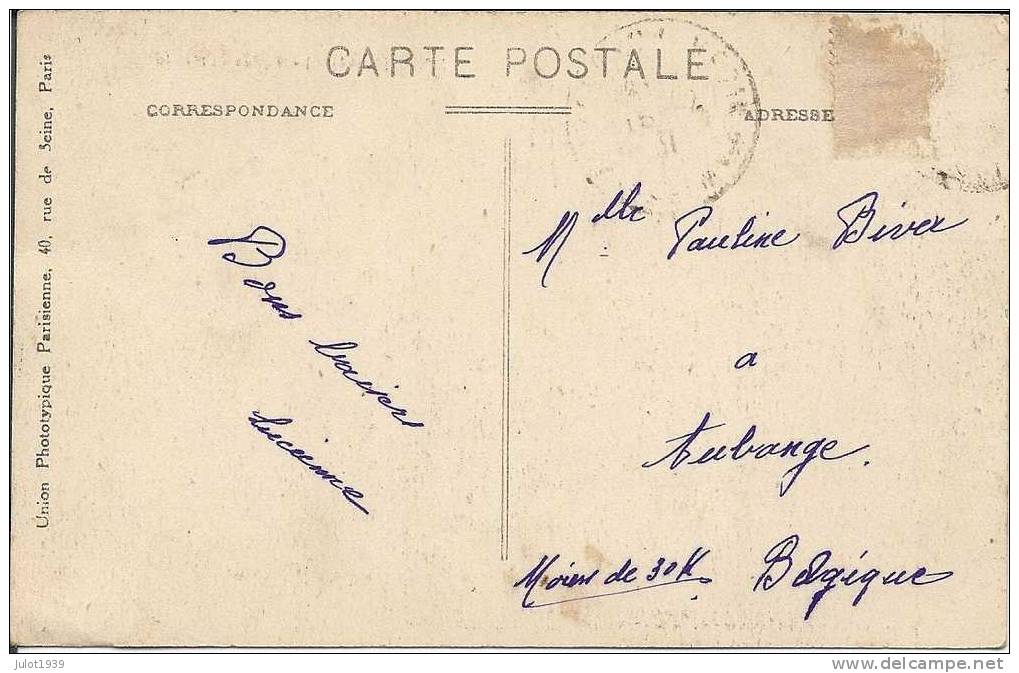 CARTE POSTALE
CORRESPONDANCE
ADRESSE
Union Phototypique Parisienne, 40, rue de Seine, Paris
Bons baisers
Lucienne
Mlle Pauline Biver
a
Aubange.
Moins de 30 K Belgique
julot1939
www.delcampe.net